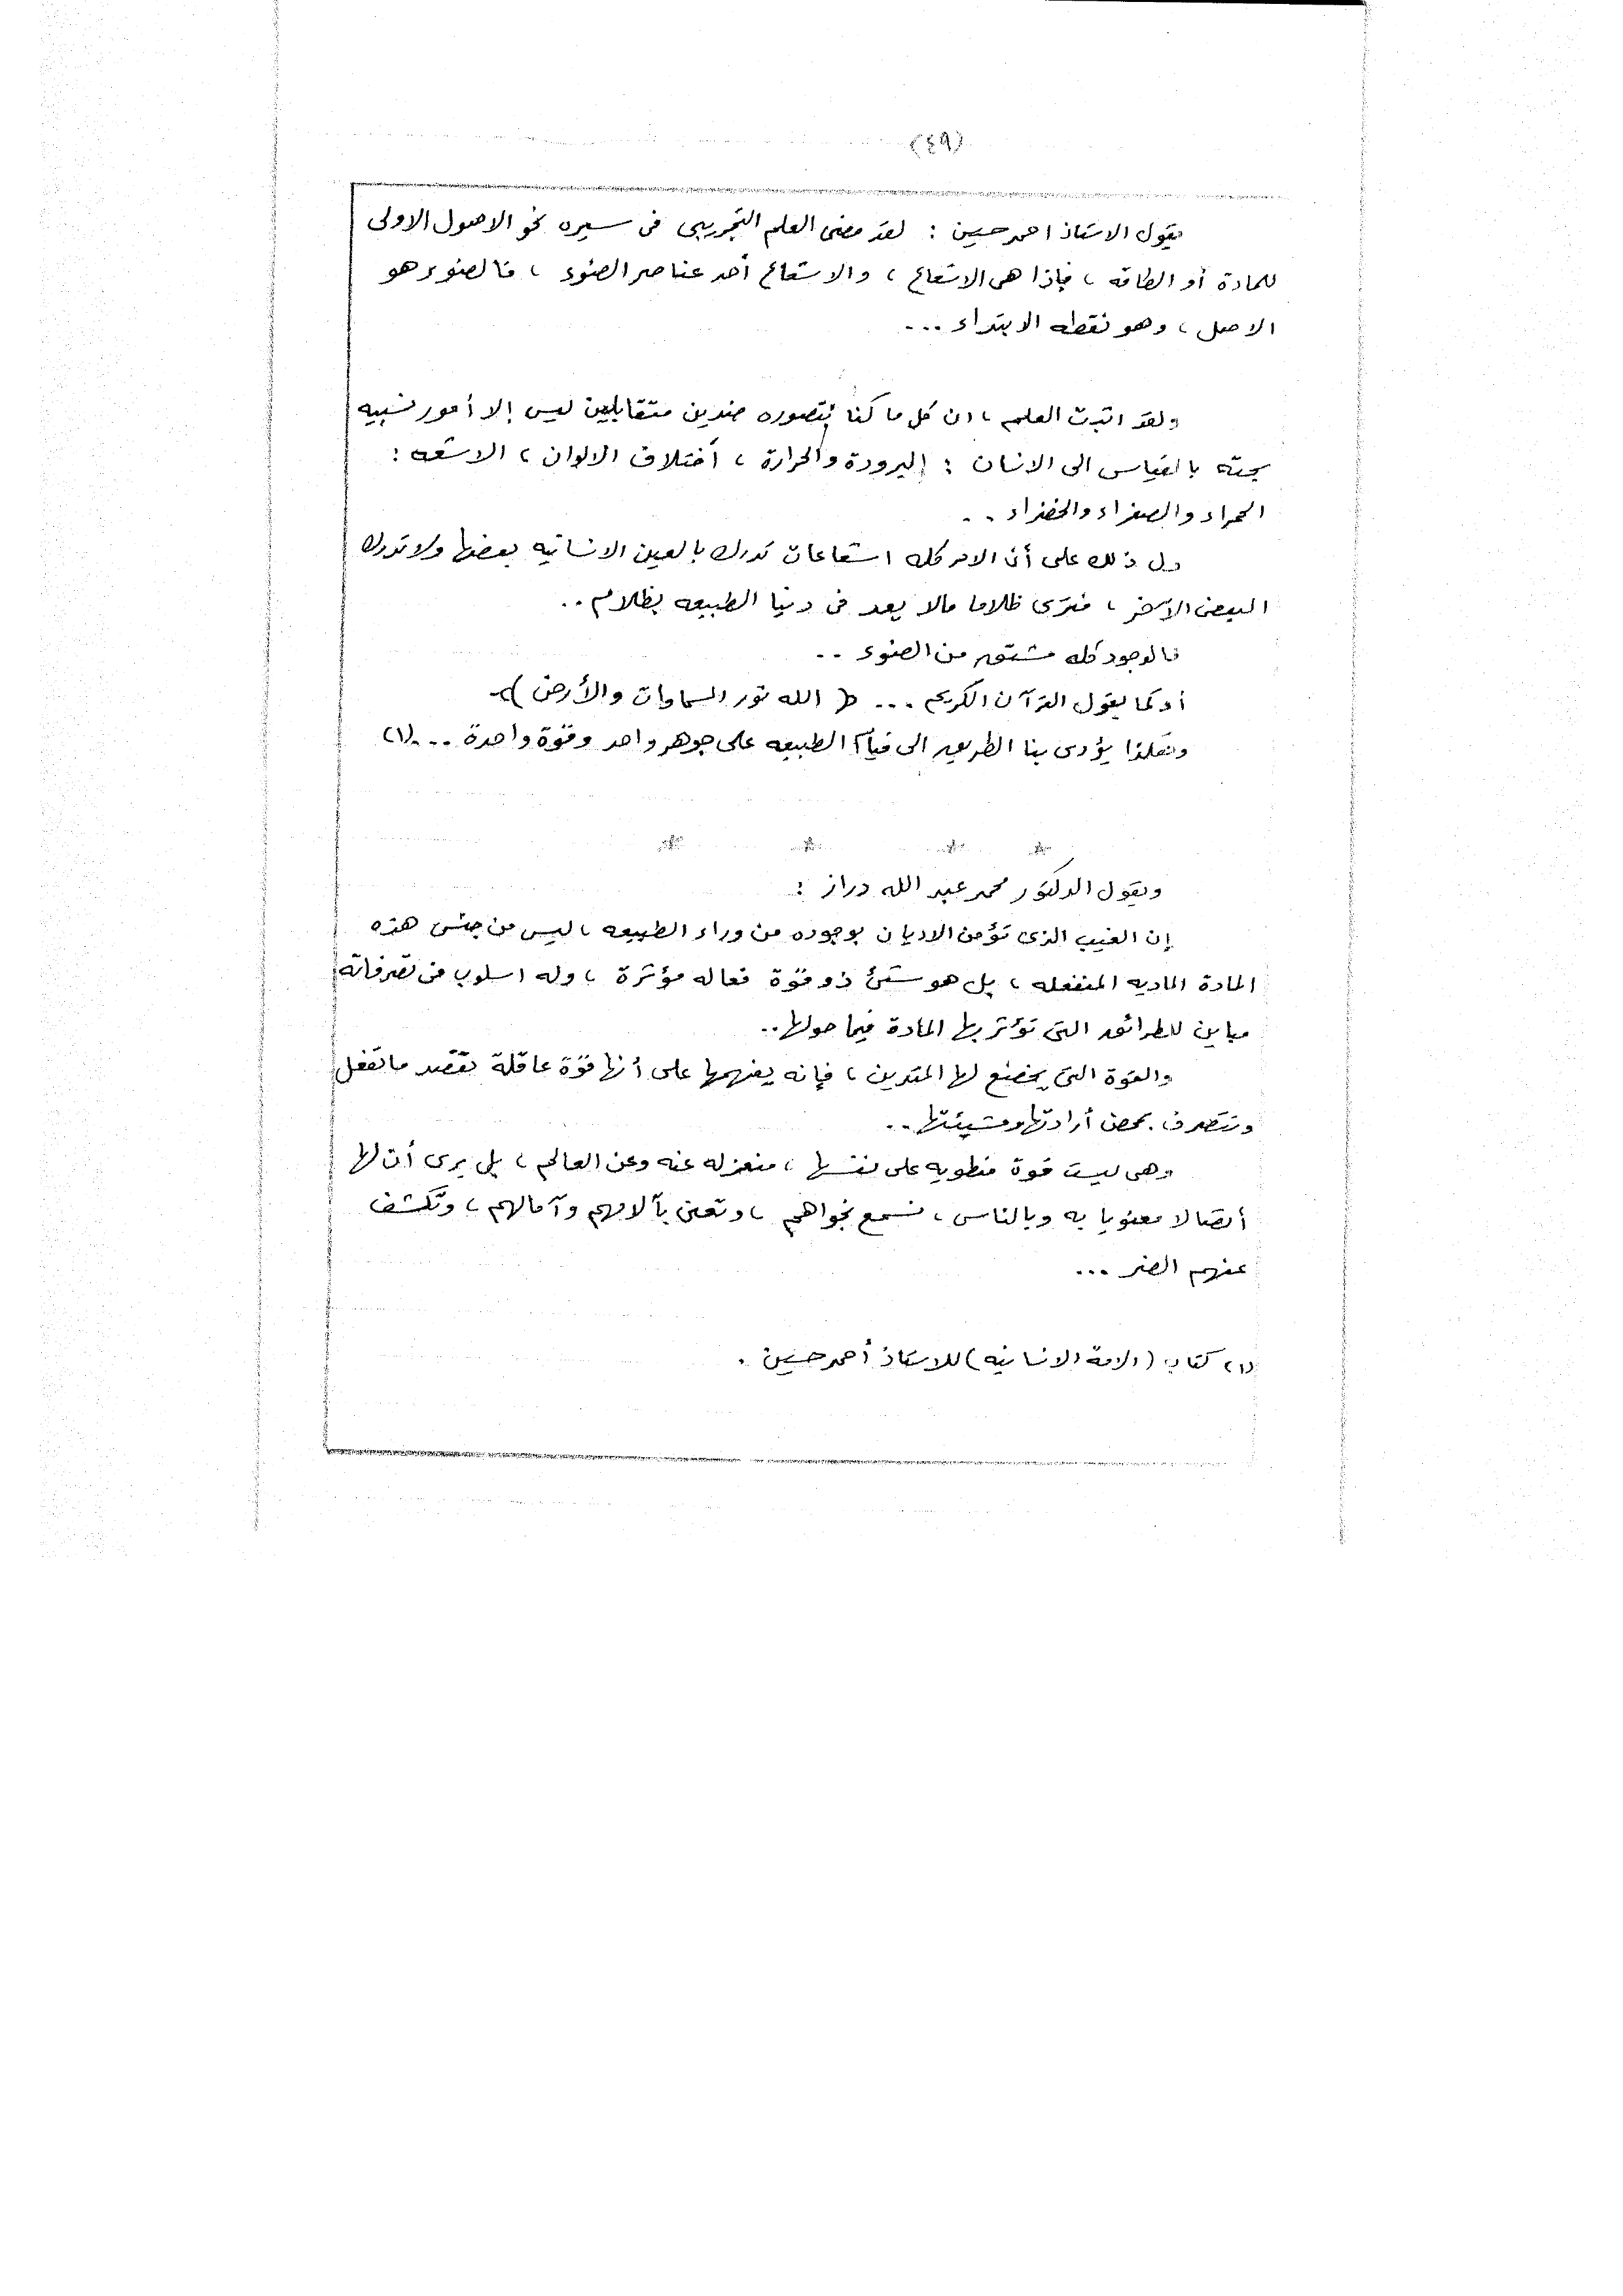 (٤٩)
يقول الاستاذ احمد حسين : لقد مضى العلم التجريبى فى سيره نحو الاصول الاولى
للمادة أو الطاقه ، فإذا هى الاشعاع ، والاشعاع أحد عناصر الضوء ، فالضوء هو
الاصل ، وهو نقطه الابتداء ...
ولقد اثبت العلم ، ان كل ما كنا نتصوره ضدين متقابلين ليس إلا أمور نسبيه
بحته بالقياس الى الانسان : البرودة والحرارة ، أختلاف الالوان ، الاشعه :
الحمراء والصفراء والخضراء ..
دل ذلك على أن الامر كله اشعاعات تدرك بالعين الانسانيه بعضها ولا تدرك
البعض الآخر ، فترى ظلاما مالا يعد فى دنيا الطبيعه بظلام ..
فالوجود كله مشتق من الضوء ..
أو كما يقول القرآن الكريم ... ( الله نور السماوات والأرض )
وهكذا يؤدى بنا الطريق الى قيام الطبيعه على جوهر واحد وقوة واحدة ... (١)
* * * *
ويقول الدكتور محمد عبد الله دراز :
إن الغيب الذى تؤمن الاديان بوجوده من وراء الطبيعه ، ليس من جنس هذه
المادة الماديه المنفعله ، بل هو شئ ذو قوة فعاله مؤثرة ، وله اسلوب فى تصرفاته
مباين للطرائق التى تؤثر بها المادة فيما حولها ..
والقوة التى يخضع لها المتدين ، فإنه يفهمها على أنها قوة عاقلة تقصد ما تفعل
وتتصرف بمحض أرادتها ومشيئتها ..
وهى ليست قوة منطويه على نفسها ، منعزله عنه وعن العالم ، بل يرى أن لها
أتصالا معنويا به وبالناس ، تسمع نجواهم ، وتعنى بآلامهم وآمالهم ، وتكشف
عنهم الضر ...
(١) كتاب (الامة الانسانيه) للاستاذ أحمد حسين .